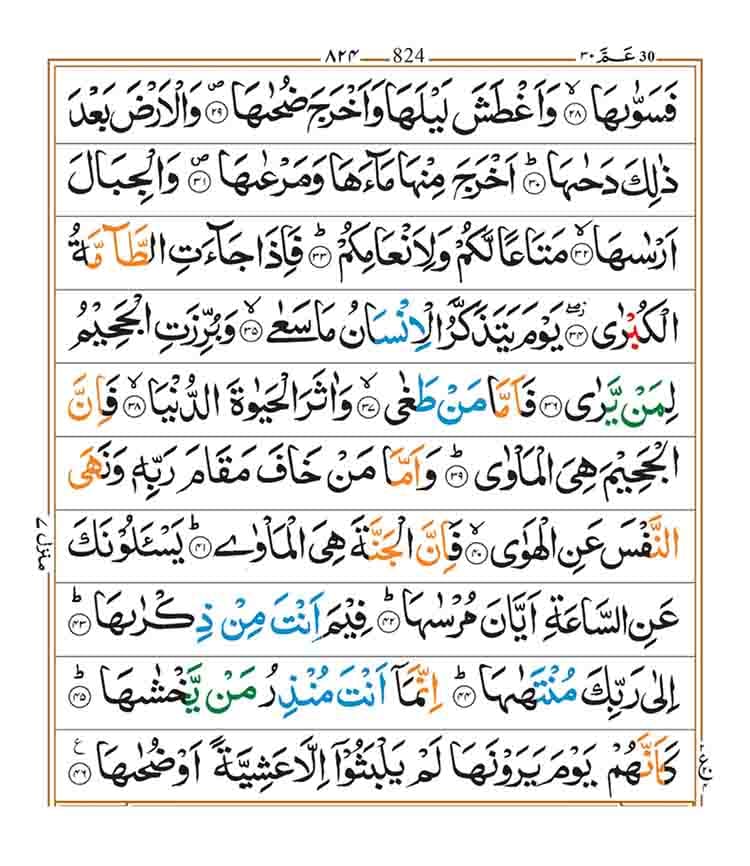 ۸۲۴ 824 عَـمَّ ۳۰ 30
فَسَوّٰىهَا ﴿۲۸﴾ۙ وَاَغْطَشَ لَيْلَهَا وَاَخْرَجَ ضُحٰىهَا ﴿۲۹﴾ص وَالْاَرْضَ بَعْدَ
ذٰلِكَ دَحٰىهَا ﴿۳۰﴾ؕ اَخْرَجَ مِنْهَا مَآءَهَا وَمَرْعٰىهَا ﴿۳۱﴾ص وَالْجِبَالَ
اَرْسٰىهَا ﴿۳۲﴾ۙ مَتَاعًا لَّكُمْ وَلِاَنْعَامِكُمْ ﴿۳۳﴾ؕ فَاِذَا جَآءَتِ الطَّآمَّةُ
الْكُبْرٰى ﴿۳۴﴾ۖز يَوْمَ يَتَذَكَّرُ الْاِنْسَانُ مَا سَعٰى ﴿۳۵﴾ۙ وَبُرِّزَتِ الْجَحِيْمُ
لِمَنْ يَّرٰى ﴿۳۶﴾ فَاَمَّا مَنْ طَغٰى ﴿۳۷﴾ۙ وَاٰثَرَ الْحَيٰوةَ الدُّنْيَا ﴿۳۸﴾ۙ فَاِنَّ
الْجَحِيْمَ هِيَ الْمَاْوٰى ﴿۳۹﴾ؕ وَاَمَّا مَنْ خَافَ مَقَامَ رَبِّهٖ وَنَهَى
النَّفْسَ عَنِ الْهَوٰى ﴿۴۰﴾ۙ فَاِنَّ الْجَنَّةَ هِيَ الْمَاْوٰى ﴿۴۱﴾ؕ يَسْـَٔلُوْنَكَ
منزل ۷
عَنِ السَّاعَةِ اَيَّانَ مُرْسٰىهَا ﴿۴۲﴾ؕ فِيْمَ اَنْتَ مِنْ ذِكْرٰىهَا ﴿۴۳﴾ؕ
اِلٰى رَبِّكَ مُنْتَهٰىهَا ﴿۴۴﴾ؕ اِنَّمَآ اَنْتَ مُنْذِرُ مَنْ يَّخْشٰىهَا ﴿۴۵﴾ؕ
كَاَنَّهُمْ يَوْمَ يَرَوْنَهَا لَمْ يَلْبَثُوْٓا اِلَّا عَشِيَّةً اَوْ ضُحٰىهَا ﴿۴۶﴾ع